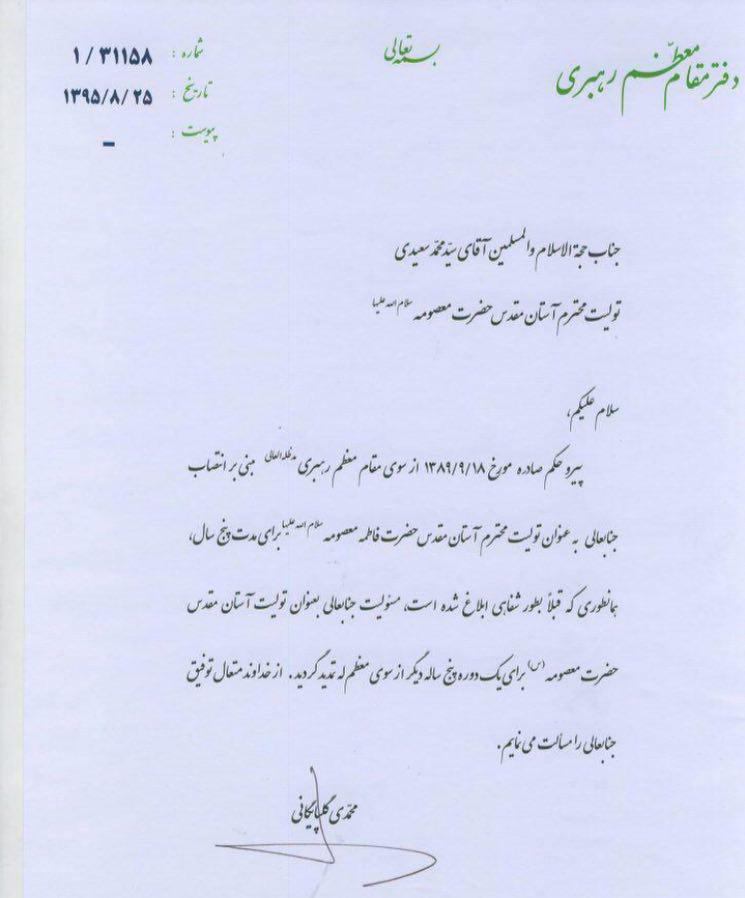 بسمه تعالی
دفتر مقام معظّم رهبری
شماره : ۱/۳۱۱۵۸
تاریخ : ۱۳۹۵/۸/۲۵
پیوست : -
جناب حجة الاسلام والمسلمین آقای سیّد محمّد سعیدی
تولیت محترم آستان مقدس حضرت معصومه سلام الله علیها
سلام علیکم،
پیرو حکم صادره مورخ ۱۳۸۹/۹/۱۸ از سوی مقام معظم رهبری مدظله العالی مبنی بر انتصاب
جنابعالی به عنوان تولیت محترم آستان مقدس حضرت فاطمه معصومه سلام الله علیها برای مدت پنج سال،
همانطوری که قبلاً بطور شفاهی ابلاغ شده است، مسئولیت جنابعالی بعنوان تولیت آستان مقدس
حضرت معصومه (س) برای یک دوره پنج ساله دیگر از سوی معظم له تمدید گردید. از خداوند متعال توفیق
جنابعالی را مسألت می نمایم.
محمّدی گلپایگانی